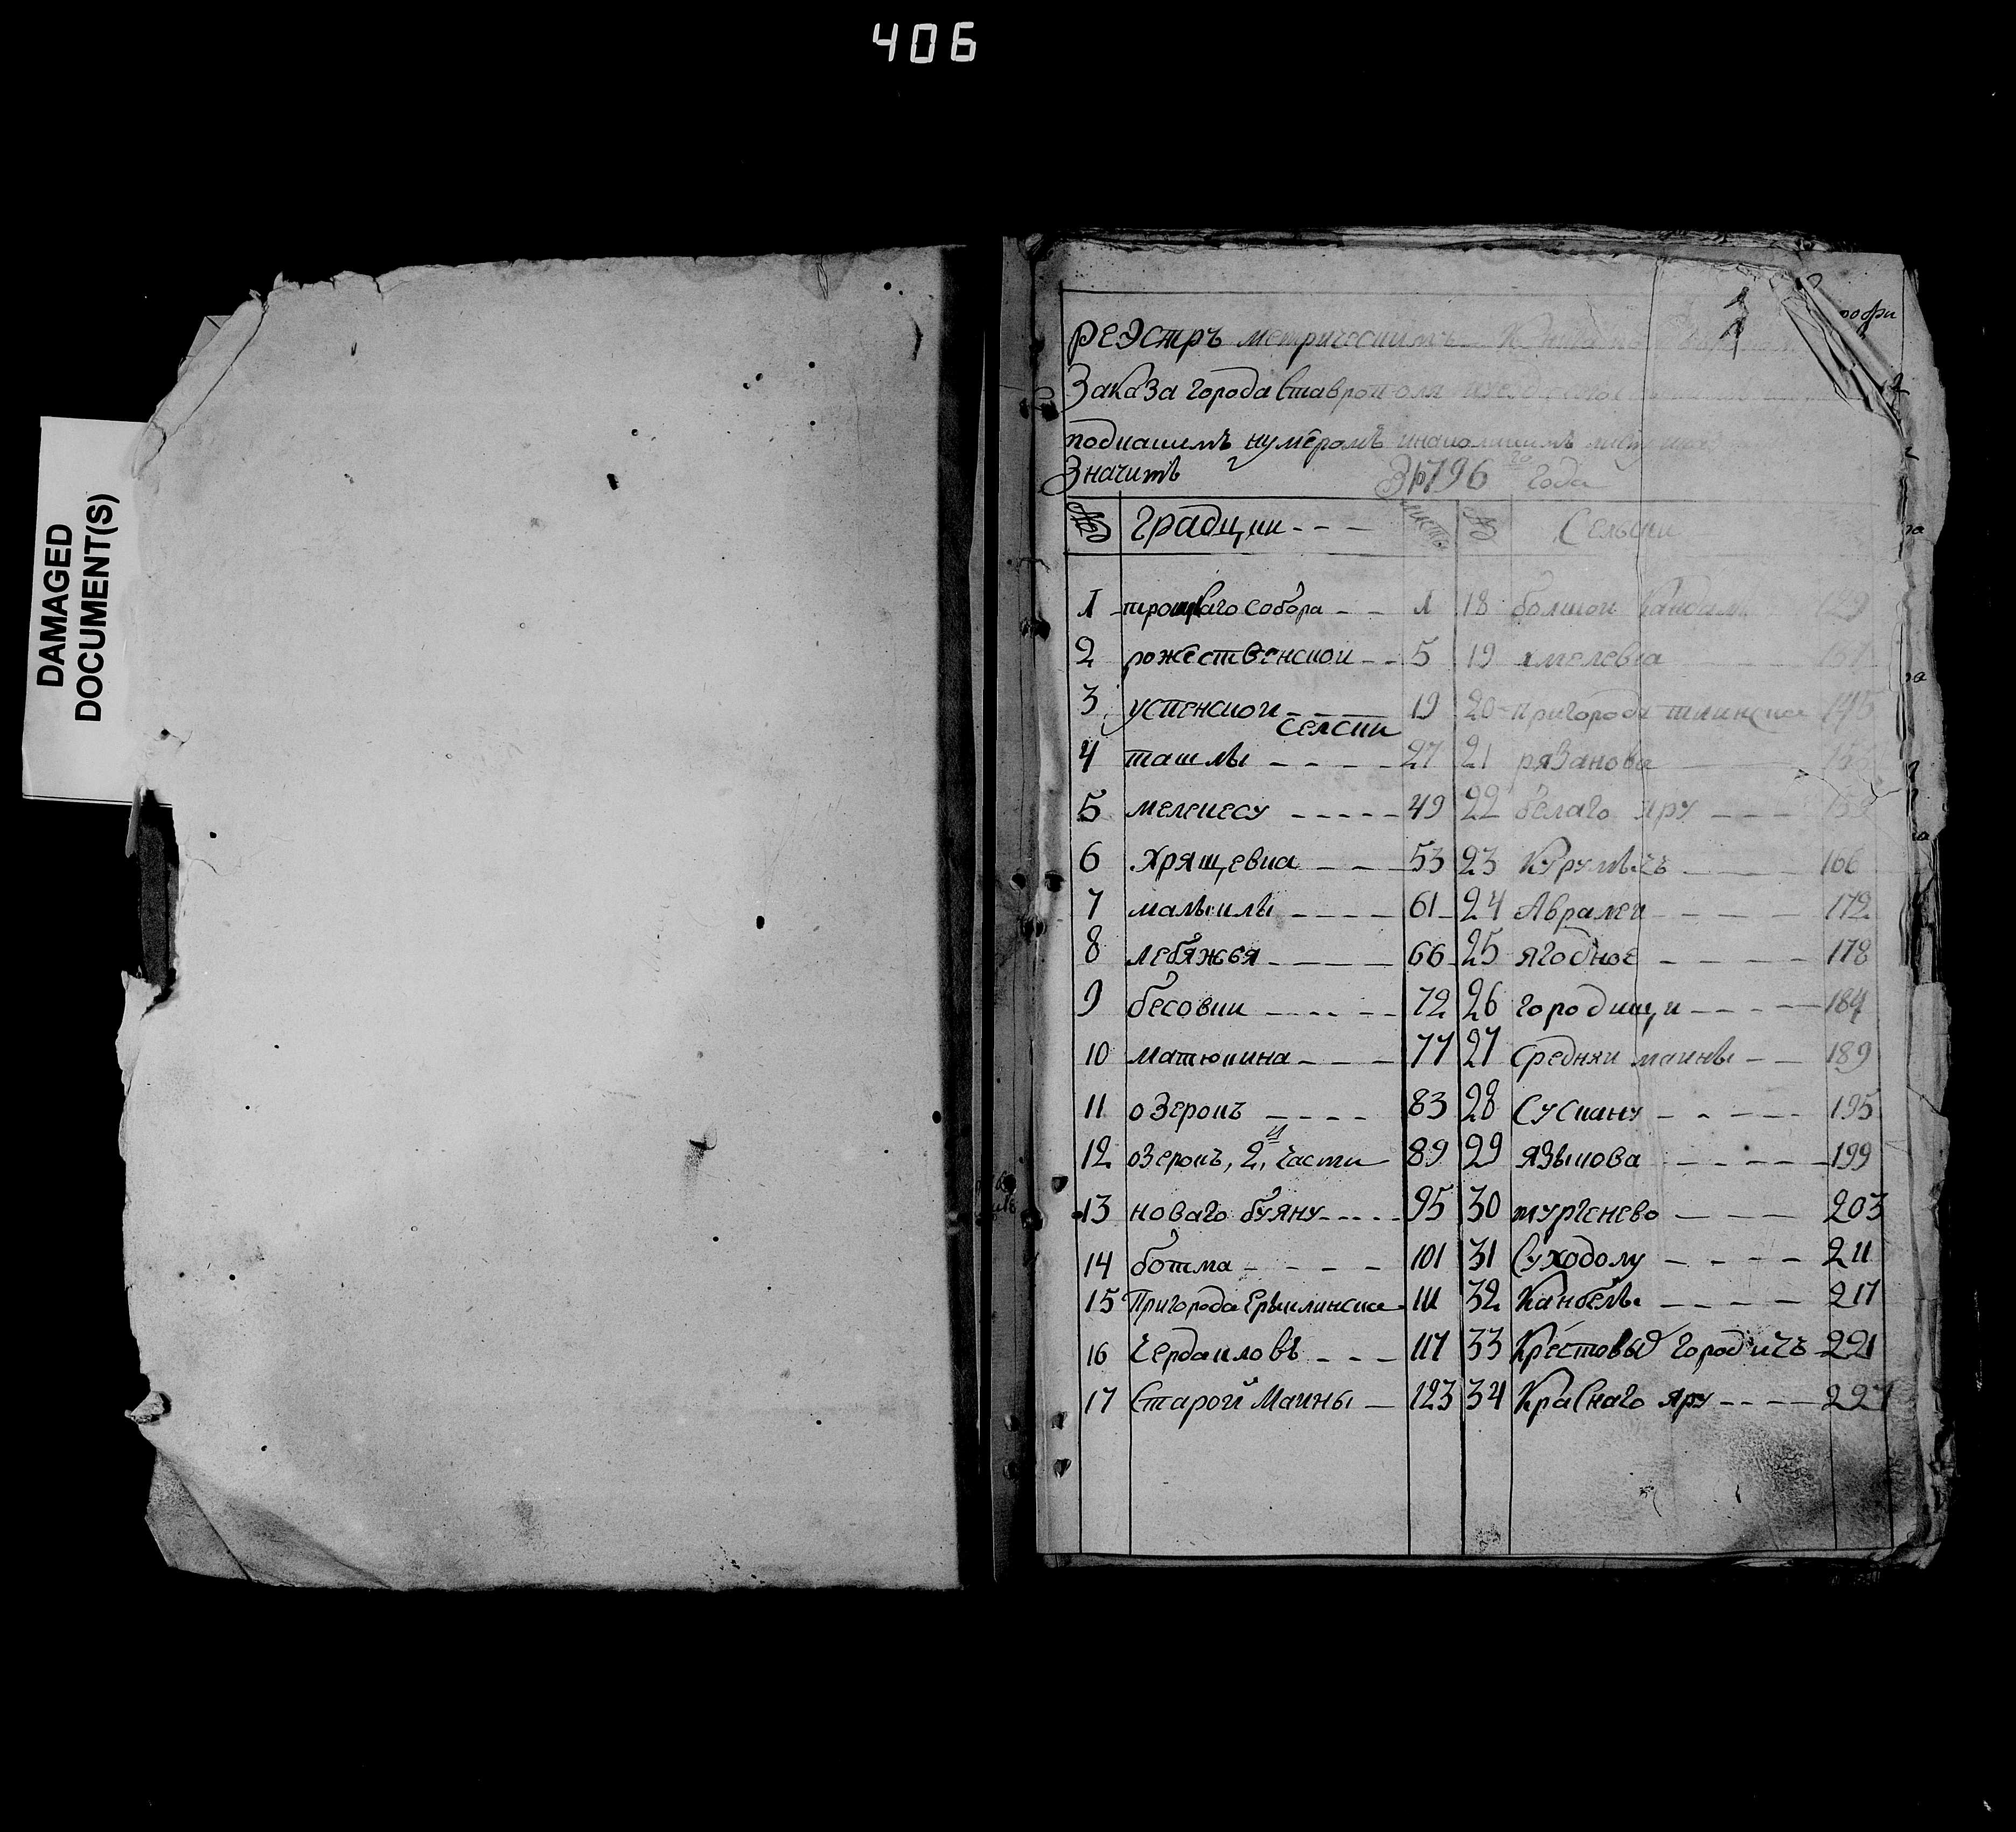 406
DAMAGED
DOCUMENT(S)
реэстръ метрическимъ
Заказа города Ставрополя
подкакимъ нумеромъ
Значитъ 1796 го года
№ градцкии - - - листъ № Сельски
1 троицкаго собора - - 1 18 болшои Кандалы 129
2 рожественскои - - 5 19 хмелевка 137
3 успенскои - - 19 20 пригорода тиинска
селски
4 ташлы - - - - 27 21 рязанова
5 мелекесу - - - - - 49 22 белаго яру - - - 159
6 хрящевка - - - 53 23 Курумычь - - - 166
7 малыклы - - - - 61 24 Авралеи - - - - 172
8 лебяжья - - - - 66 25 ягодное - - - - 178
9 бесовки - - - - - 72 26 городищи - - - - 184
10 матюкина - - - - 77 27 средняи маины - - 189
11 озерокъ - - - - 83 28 Сускану - - - - - 195
12 озерокъ, 2, и части 89 29 языкова - - - - - 199
13 новаго буяну - - - - - 95 30 тургенево - - - 203
14 ботма - - - - - 101 31 Суходолу - - - - 211
15 Пригорода Ерыклинска 111 32 Канбелы - - - - 217
16 чердакловъ - - - 117 33 Крестовый городичъ 221
17 Старой Маины - 123 34 Краснаго яру - - - - 227